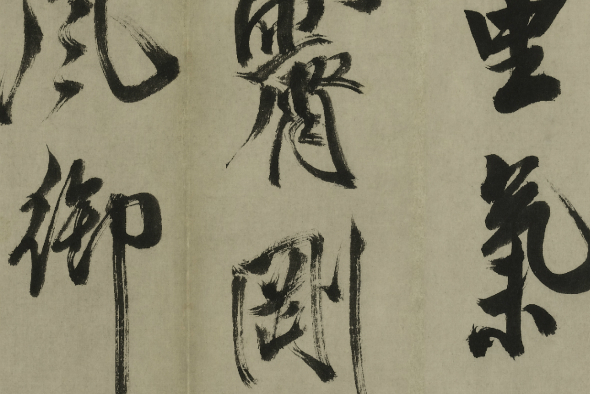 里氣
剛
風御